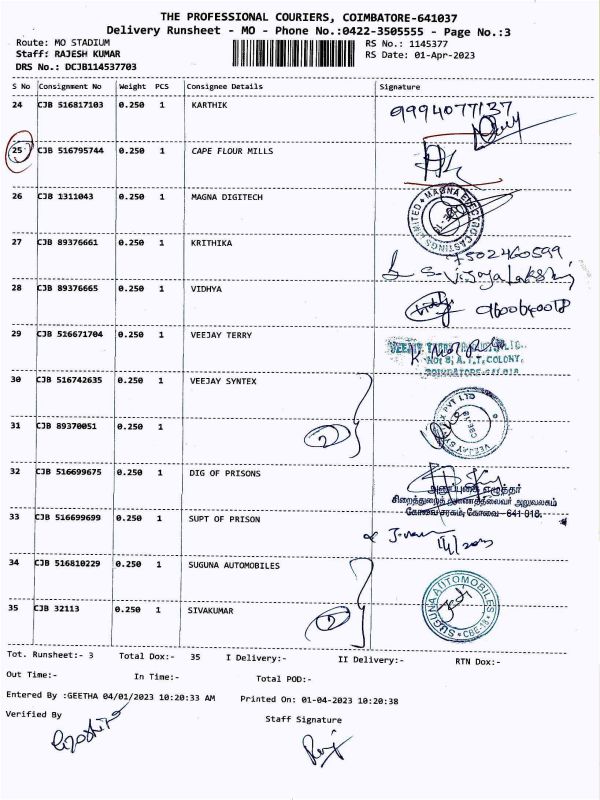 THE PROFESSIONAL COURIERS, COIMBATORE-641037
Delivery Runsheet - MO - Phone No.:0422-3505555 - Page No.:3
Route: MO STADIUM
RS No.: 1145377
Staff: RAJESH KUMAR
RS Date: 01-Apr-2023
DRS No.: DCJB114537703
S No Consignment No Weight PCS Consignee Details Signature
24 CJB 516817103 0.250 1 KARTHIK 9994077137
25 CJB 516795744 0.250 1 CAPE FLOUR MILLS
26 CJB 1311043 0.250 1 MAGNA DIGITECH
MAGNA ELECTRO CASTINGS LIMITED
27 CJB 89376661 0.250 1 KRITHIKA 7502460599
S. Vijayalakshmi
28 CJB 89376665 0.250 1 VIDHYA 9600640018
29 CJB 516671704 0.250 1 VEEJAY TERRY
No: 8, A.T.T. COLONY,
COIMBATORE-641018
30 CJB 516742635 0.250 1 VEEJAY SYNTEX
VEEJAY SYNTEX PVT LTD
31 CJB 89370051 0.250 1
2
32 CJB 516699675 0.250 1 DIG OF PRISONS
அனுப்புகை எழுத்தர்
சிறைத்துறை துணைத்தலைவர் அலுவலகம்
கோவை சரகம், கோவை - 641 018.
33 CJB 516699699 0.250 1 SUPT OF PRISON
1/4/2023
34 CJB 516810229 0.250 1 SUGUNA AUTOMOBILES
SUGUNA AUTOMOBILES
CBE-18
35 CJB 32113 0.250 1 SIVAKUMAR
2
Tot. Runsheet:- 3 Total Dox:- 35 I Delivery:- II Delivery:- RTN Dox:-
Out Time:- In Time:- Total POD:-
Entered By :GEETHA 04/01/2023 10:20:33 AM Printed On: 01-04-2023 10:20:38
Verified By Staff Signature